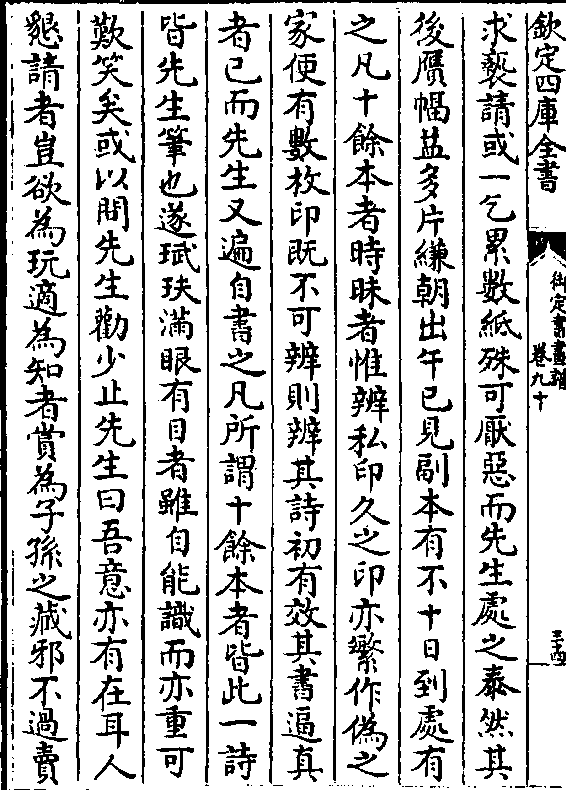 欽定四庫全書
御定書畫譜
卷九十
三十四
求褻請或一乞累數紙殊可厭惡而先生處之泰然其
後贋幅益多片縑朝出午已見副本有不十日到處有
之凡十餘本者時昧者惟辨私印久之印亦繁作偽之
家便有數枚印既不可辨則辨其詩初有效其書逼真
者已而先生又遍自書之凡所謂十餘本者皆此一詩
皆先生筆也遂珷玞滿眼有目者雖自能識而亦重可
歎笑矣或以間先生勸少止先生曰吾意亦有在耳人
懇請者豈欲為玩適為知者賞為子孫之藏邪不過賣